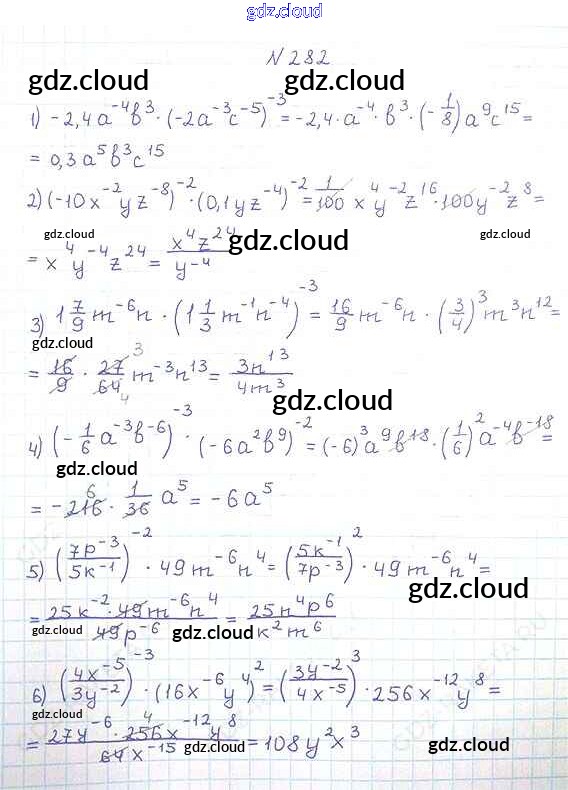 gdz.cloud
N 282
gdz.cloud gdz.cloud
1) -2,4a⁻⁴b³·(-2a⁻³c⁻⁵)⁻³=-2,4·a⁻⁴·b³·(-1/8)a⁹c¹⁵=
=0,3a⁵b³c¹⁵
gdz.cloud gdz.cloud
2) (-10x⁻²yz⁻⁸)⁻²·(0,1yz⁻⁴)⁻²=1/100 x⁴y⁻²z¹⁶·100y⁻²z⁸=
gdz.cloud gdz.cloud gdz.cloud
=x⁴y⁻⁴z²⁴=x⁴z²⁴/y⁻⁴
3) 1 7/9 m⁻⁶n·(1 1/3 m⁻¹n⁻⁴)⁻³=16/9 m⁻⁶n·(3/4)³m³n¹²=
gdz.cloud
=16/9·27/64 3 4 m⁻³n¹³=3n¹³/4m³
gdz.cloud
4) (-1/6 a⁻³b⁻⁶)⁻³·(-6a²b⁹)⁻²=(-6)³a⁹b¹⁸·(1/6)²a⁻⁴b⁻¹⁸=
gdz.cloud
=-216 6·1/36 a⁵=-6a⁵
5) (7p⁻³/5k⁻¹)⁻²·49m⁻⁶n⁴=(5k⁻¹/7p⁻³)²·49m⁻⁶n⁴=
gdz.cloud gdz.cloud
=25k⁻²·49m⁻⁶n⁴/49p⁻⁶=25n⁴p⁶/k²m⁶
gdz.cloud gdz.cloud
6) (4x⁻⁵/3y⁻²)⁻³·(16x⁻⁶y⁴)²=(3y⁻²/4x⁻⁵)³·256x⁻¹²y⁸=
gdz.cloud
=27y⁻⁶·256 4 x⁻¹²y⁸/64x⁻¹⁵=108y²x³
gdz.cloud gdz.cloud gdz.cloud